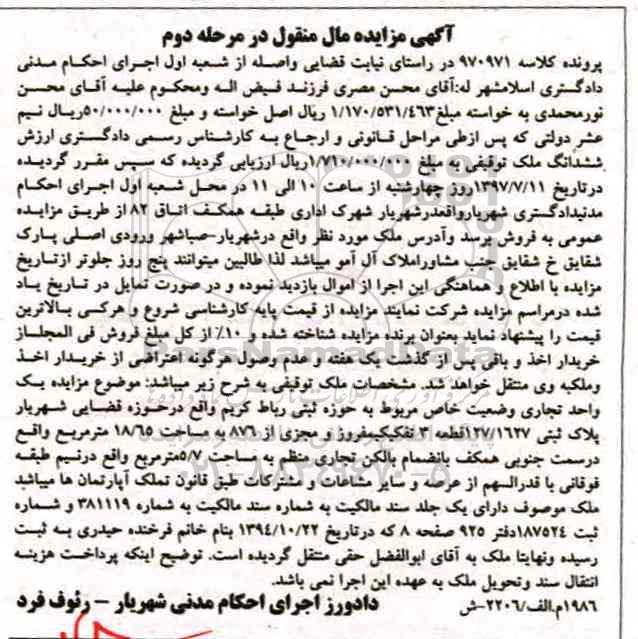 آگهی مزایده مال منقول در مرحله دوم
پرونده کلاسه ۹۷۰۹۷۱ در راستای نیابت قضایی واصله از شعبه اول اجرای احکام مدنی
دادگستری اسلامشهر له:آقای محسن مصری فرزند فیض اله ومحکوم علیه آقای محسن
نورمحمدی به خواسته مبلغ۱/۱۷۰/۵۳۱/۴۶۳ ریال اصل خواسته و مبلغ ۵۰/۰۰۰/۰۰۰ریال نیم
عشر دولتی که پس ازطی مراحل قانونی و ارجاع به کارشناس رسمی دادگستری ارزش
ششدانگ ملک توقیفی به مبلغ ۱/۷۱۰/۰۰۰/۰۰۰ریال ارزیابی گردیده که سپس مقرر گردیده
درتاریخ ۱۳۹۷/۷/۱۱روز چهارشنبه از ساعت ۱۰ الی ۱۱ در محل شعبه اول اجرای احکام
مدنیدادگستری شهریارواقعدرشهریار شهرک اداری طبقه همکف اتاق ۸۲ از طریق مزایده
عمومی به فروش برسد وآدرس ملک مورد نظر واقع درشهریار-صباشهر ورودی اصلی پارک
شقایق خ شقایق جنب مشاوراملاک آل آمو میباشد لذا طالبین میتوانند پنج روز جلوتر ازتاریخ
مزایده با اطلاع و هماهنگی این اجرا از اموال بازدید نموده و در صورت تمایل در تاریخ یاد
شده درمراسم مزایده شرکت نمایند مزایده از قیمت پایه کارشناسی شروع و هرکسی بالاترین
قیمت را پیشنهاد نماید بعنوان برنده مزایده شناخته شده و ۱۰٪ از کل مبلغ فروش فی المجلس از
خریدار اخذ و باقی پس از گذشت یک هفته و عدم وصول هرگونه اعتراضی از خریدار اخذ
وملکبه وی منتقل خواهد شد. مشخصات ملک توقیفی به شرح زیر میباشد: موضوع مزایده یک
واحد تجاری وضعیت خاص مربوط به حوزه ثبتی رباط کریم واقع درحوزه قضایی شهریار
پلاک ثبتی ۱۲۷/۱۶۲۷قطعه ۳ تفکیکیمفروز و مجزی از ۸۷۶ به مساحت ۱۸/۶۵ مترمربع واقع
درسمت جنوبی همکف بانضمام بالکن تجاری منظم به مساحت ۵/۷مترمربع واقع درنیم طبقه
فوقانی با قدرالسهم از عرصه و سایر مشاعات و مشترکات طبق قانون تملک آپارتمان ها میباشد
ملک موصوف دارای یک جلد سند مالکیت به شماره سند مالکیت به شماره ۳۸۱۱۱۹ و شماره
ثبت ۱۸۷۵۲۴دفتر ۹۲۵ صفحه ۸ که درتاریخ ۱۳۹۴/۱۰/۲۲ بنام خانم فرخنده حیدری به ثبت
رسیده ونهایتا ملک به آقای ابوالفضل حقی منتقل گردیده است. توضیح اینکه پرداخت هزینه
انتقال سند وتحویل ملک به عهده این اجرا نمی باشد.
۱۹۸۶م.الف/۲۲۰۶-ش دادورز اجرای احکام مدنی شهریار - رئوف فرد